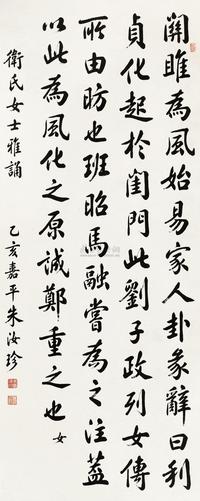 關雎為風始易家人卦彖辭曰利
貞化起於閨門此劉子政列女傳
所由昉也班昭馬融嘗為之注蓋
以此為風化之原誠鄭重之也 女
衛氏女士雅誦
乙亥嘉平朱汝珍